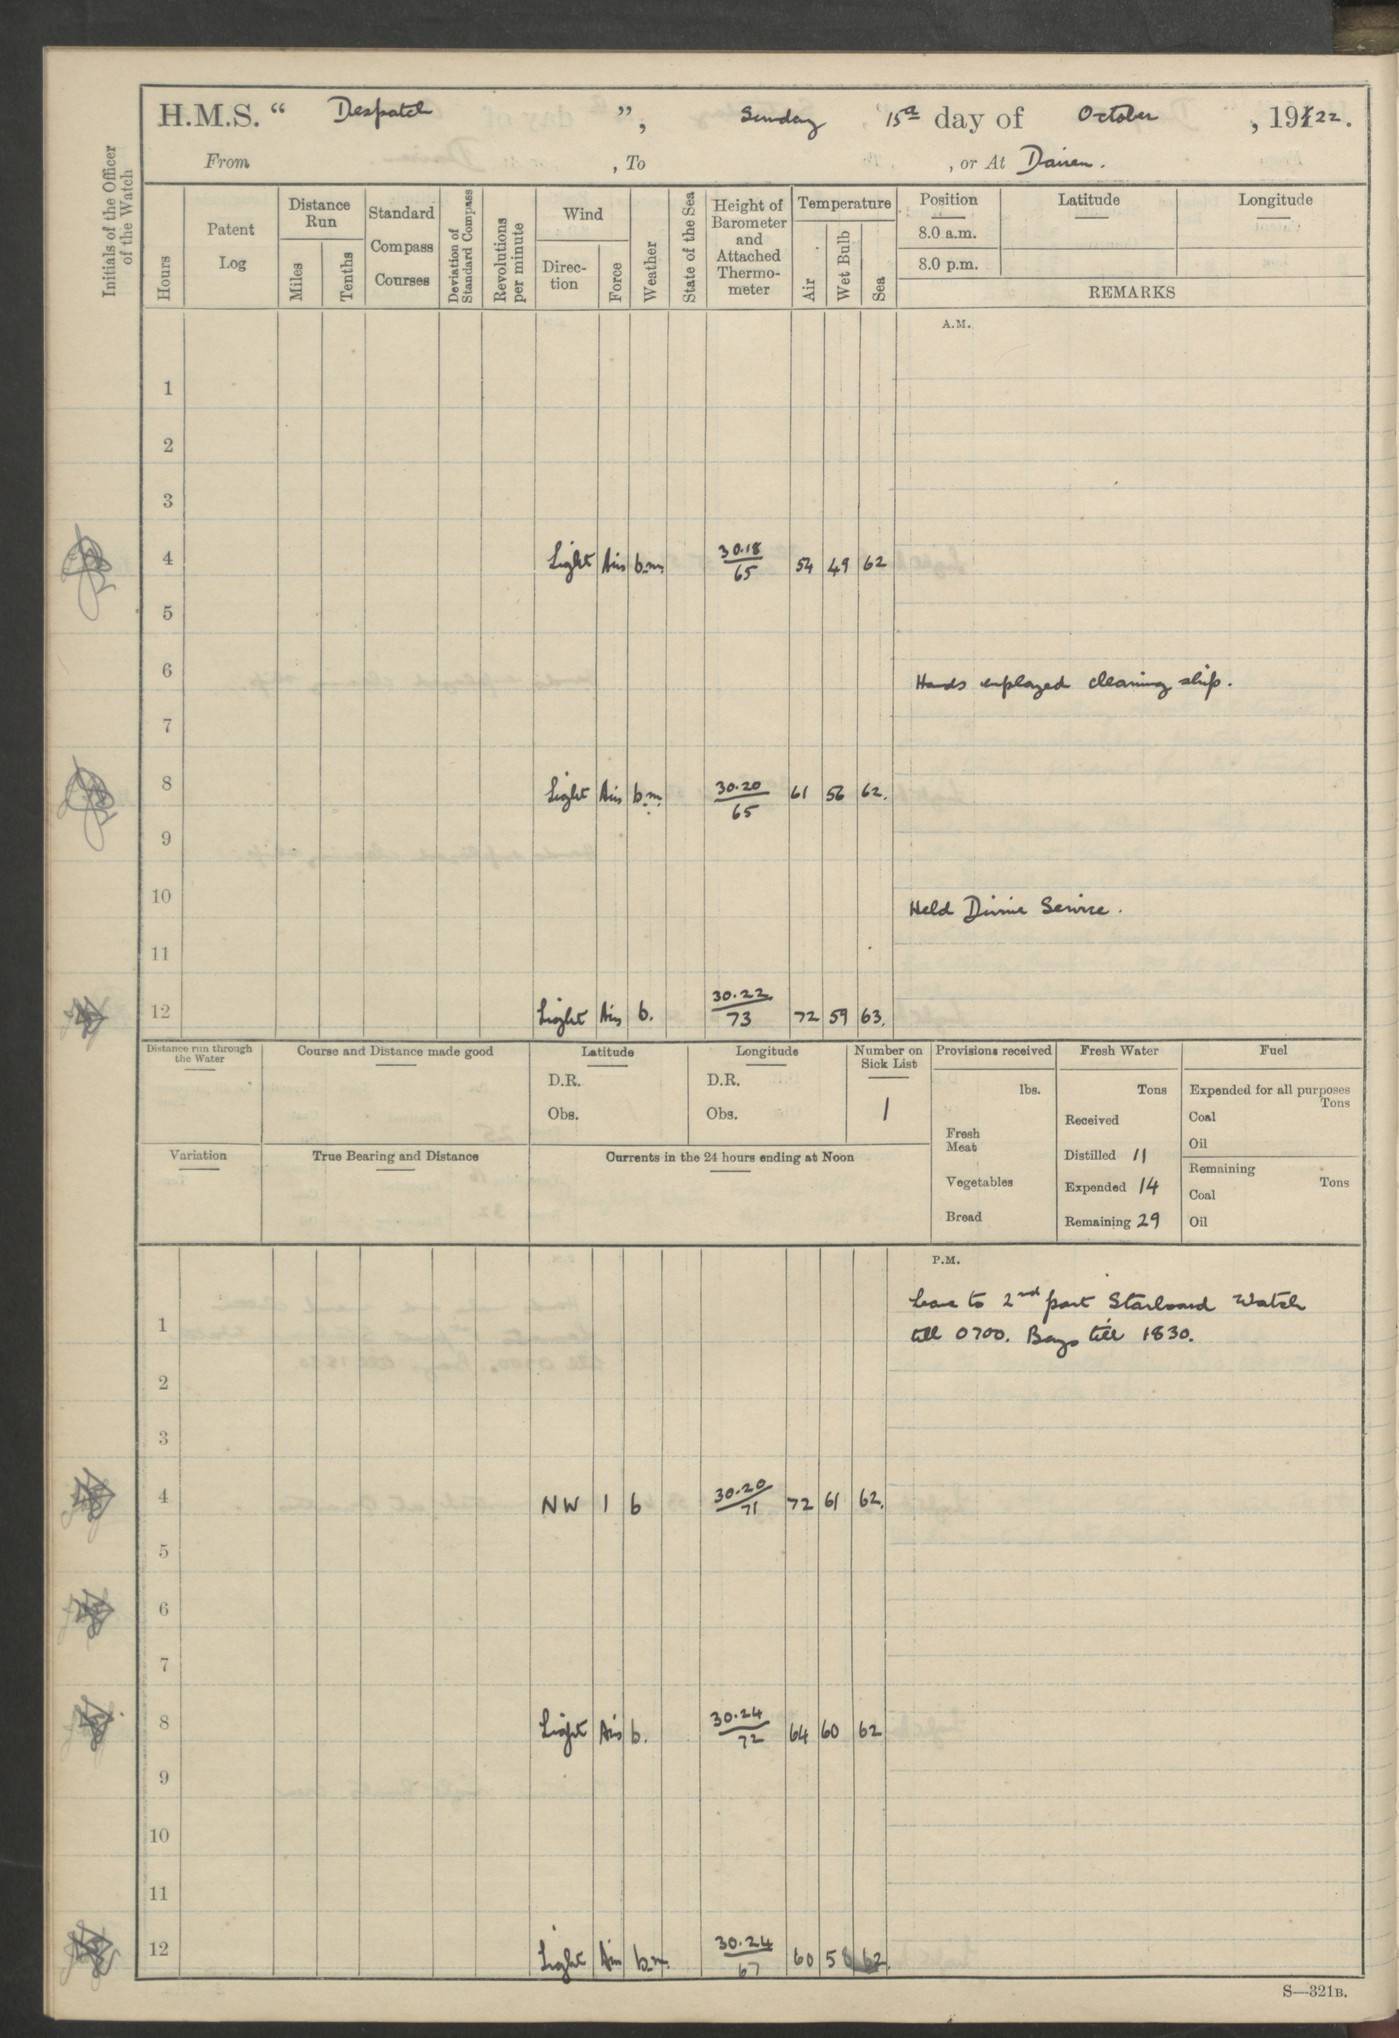 H.M.S. “ Despatch ”, Sunday 15th day of October , 1922.
From , To , or At Dairen.
Initials of the Officer of the Watch
Hours
Patent Log
Distance Run
Miles
Tenths
Standard Compass Courses
Deviation of Standard Compass
Revolutions per minute
Wind
Direc-tion
Force
Weather
State of the Sea
Height of Barometer and Attached Thermo-meter
Temperature
Air
Wet Bulb
Sea
Position
8.0 a.m.
8.0 p.m.
Latitude
Longitude
REMARKS
A.M.
1
2
3
4 Light Airs b.m. 30.18/65 54 49 62
5
6 Hands employed cleaning ship.
7
8 Light Airs b.m. 30.20/65 61 56 62.
9
10 Held Divine Service.
11
12 Light Airs b. 30.22/73 72 59 63.
Distance run through the Water
Course and Distance made good
Latitude
D.R.
Obs.
Longitude
D.R.
Obs.
Number on Sick List
1
Provisions received
lbs.
Fresh Meat
Vegetables
Bread
Fresh Water
Tons
Received
Distilled 11
Expended 14
Remaining 29
Fuel
Expended for all purposes
Tons
Coal
Oil
Remaining
Tons
Coal
Oil
Variation
True Bearing and Distance
Currents in the 24 hours ending at Noon
P.M.
Leave to 2nd part Starboard Watch
1 till 0700. Boys till 1830.
2
3
4 NW 1 b 30.20/71 72 61 62.
5
6
7
8 Light Airs b. 30.24/72 64 60 62
9
10
11
12 Light Airs b.m. 30.24/67 60 58 62
S—321B.